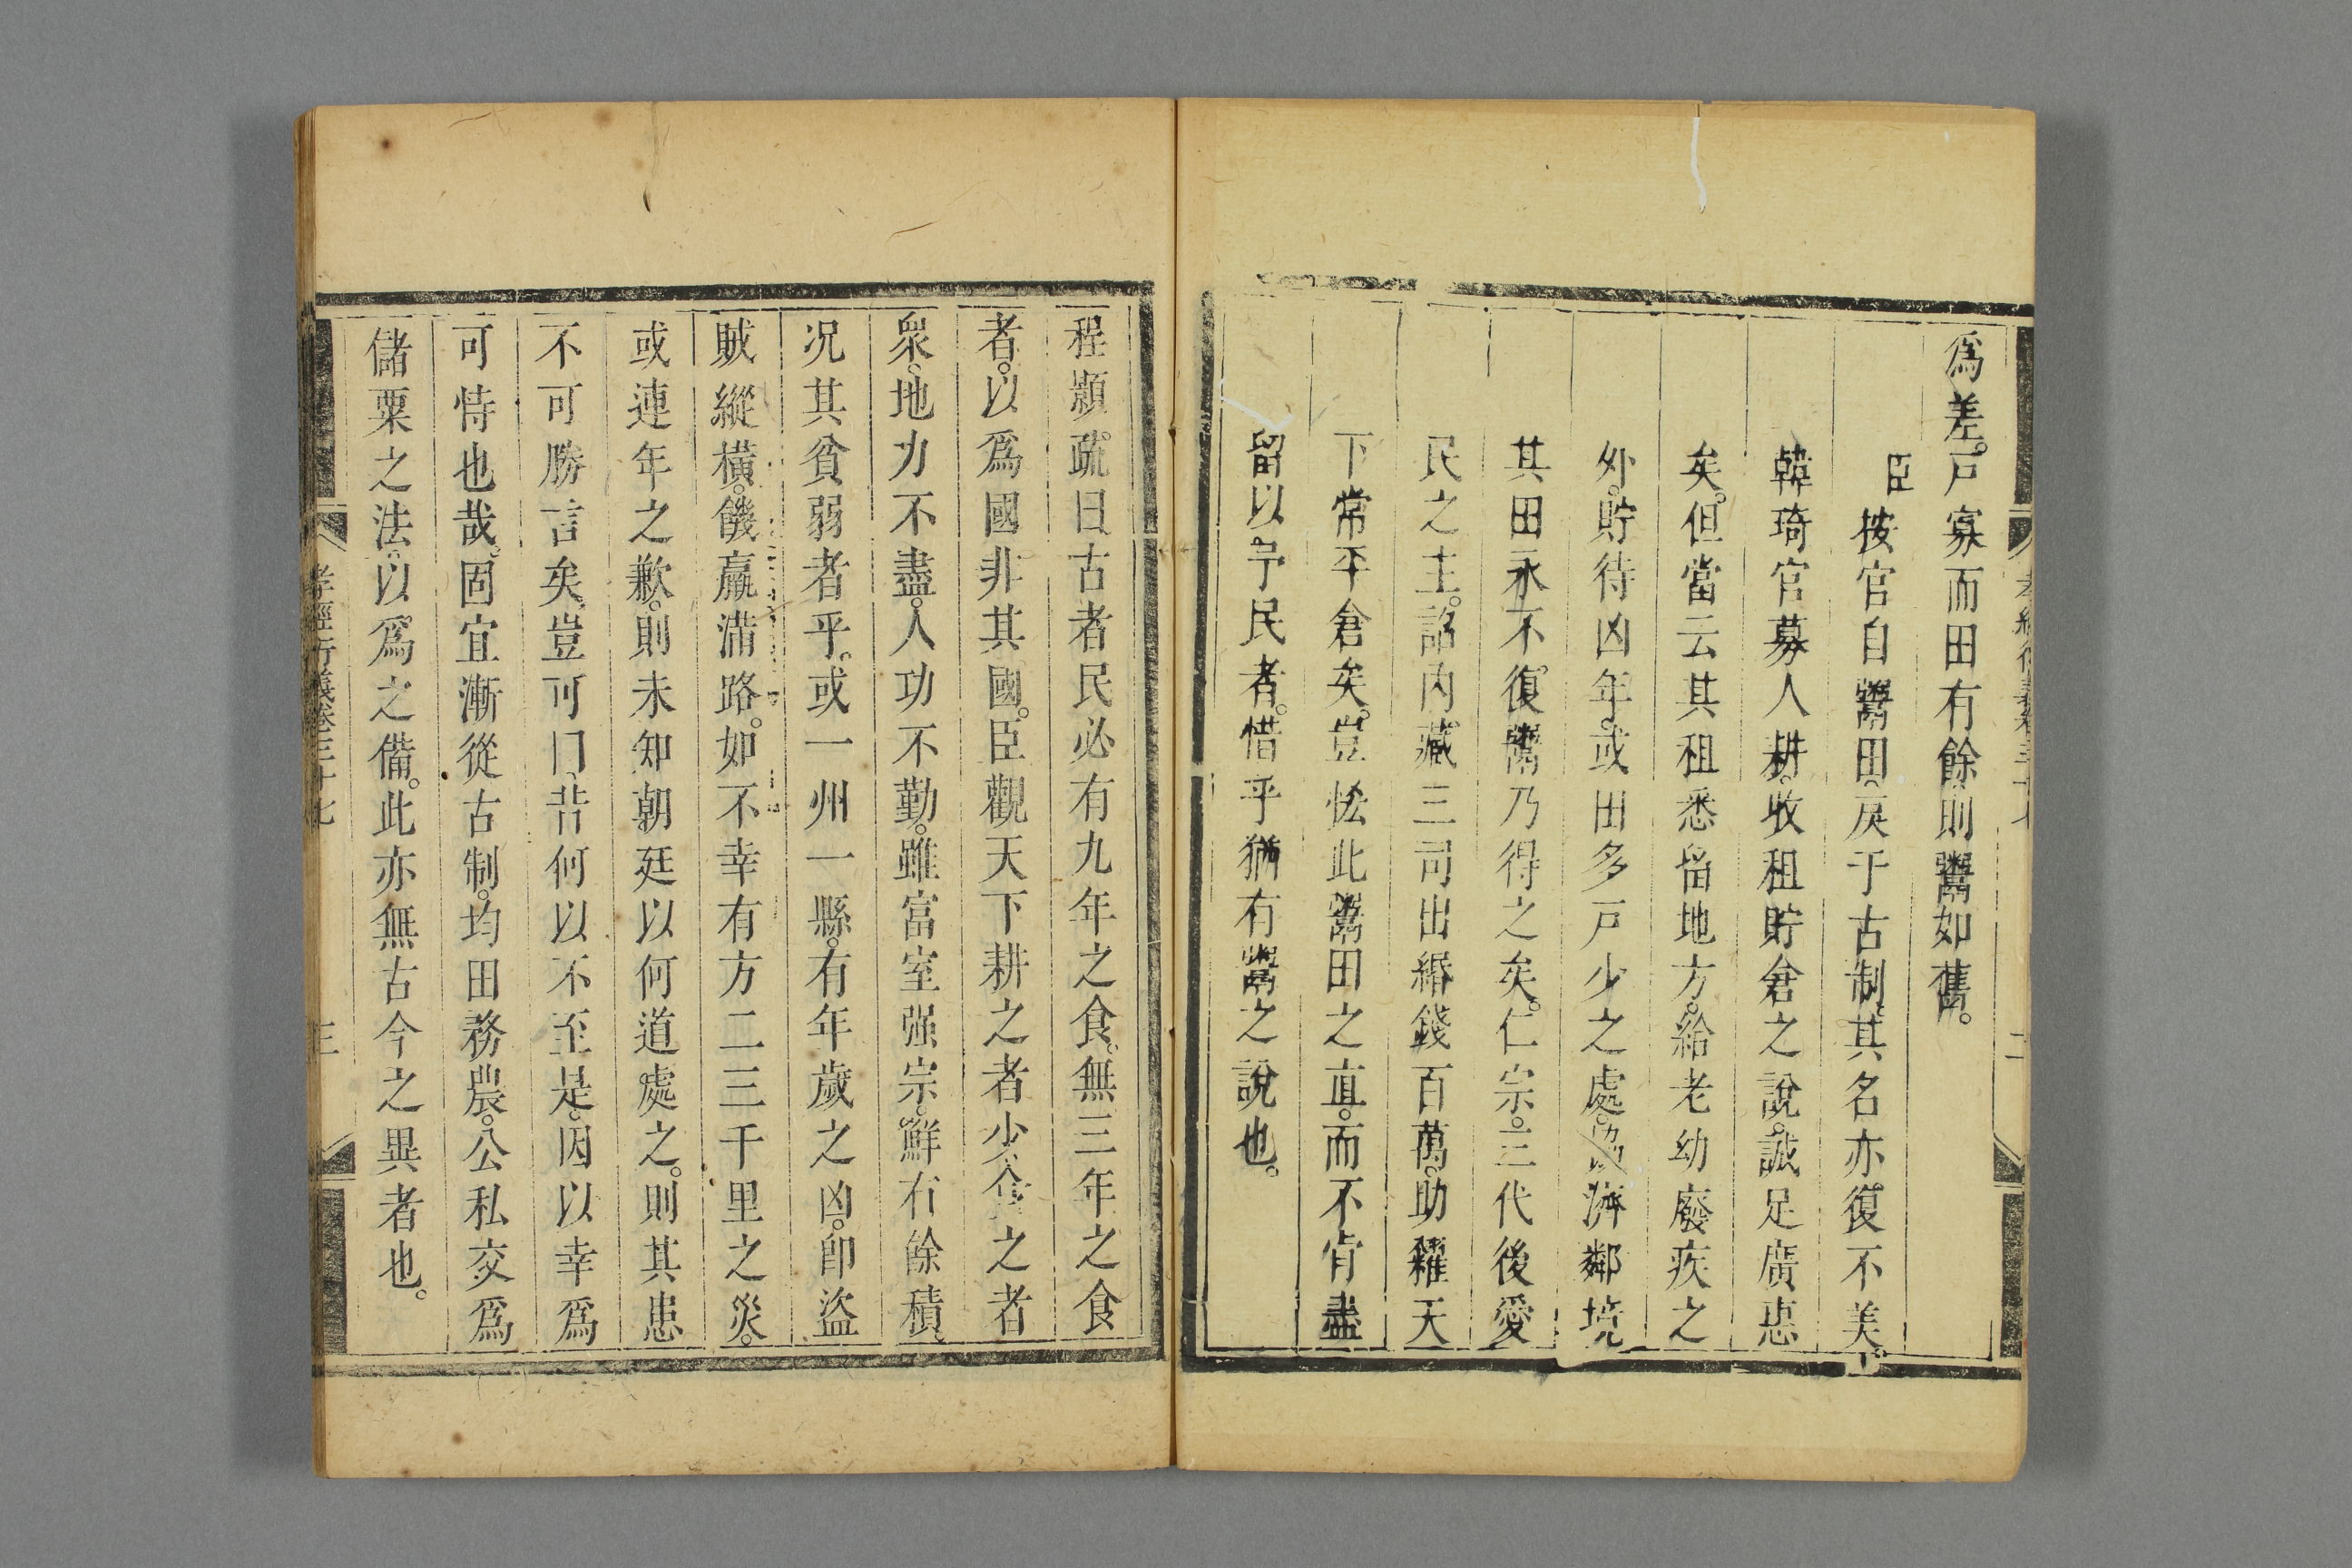 爲差。戸寡而田有餘。則鬻如舊。
臣按官自鬻田。戾于古制。其名亦復不美。
韓琦官募人耕。收租貯倉之說。誠足廣惠
矣。但當云其租悉留地方。給老幼廢疾之
外。貯待凶年。或田多戸少之處。協濟鄰境
其田永不復鬻乃得之矣。仁宗。三代後愛
民之主。詔内藏三司出緡錢百萬。助糴天
下常平倉矣。豈恡此鬻田之直。而不肯盡
留以予民者。惜乎猶有鬻之說也。
程顥疏曰古者民必有九年之食。無三年之食
者。以爲國非其國。臣觀天下耕之者少。食之者
衆。地力不盡。人功不勤。雖富室强宗。鮮有餘積
况其貧弱者乎。或一州一縣。有年歲之凶。卽盜
賊縱橫。饑羸滿路。如不幸有方二三千里之災。
或連年之歉。則未知朝廷以何道處之。則其患
不可勝言矣。豈可曰昔何以不至是。因以幸爲
可恃也哉。固宜漸從古制。均田務農。公私交爲
儲粟之法。以爲之備。此亦無古今之異者也。
孝經衍義卷三十七
三